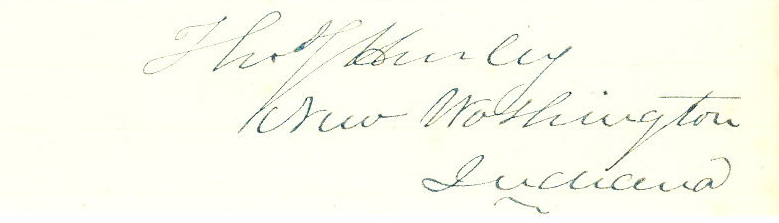 Thos Hurley
New Washington
Indiana